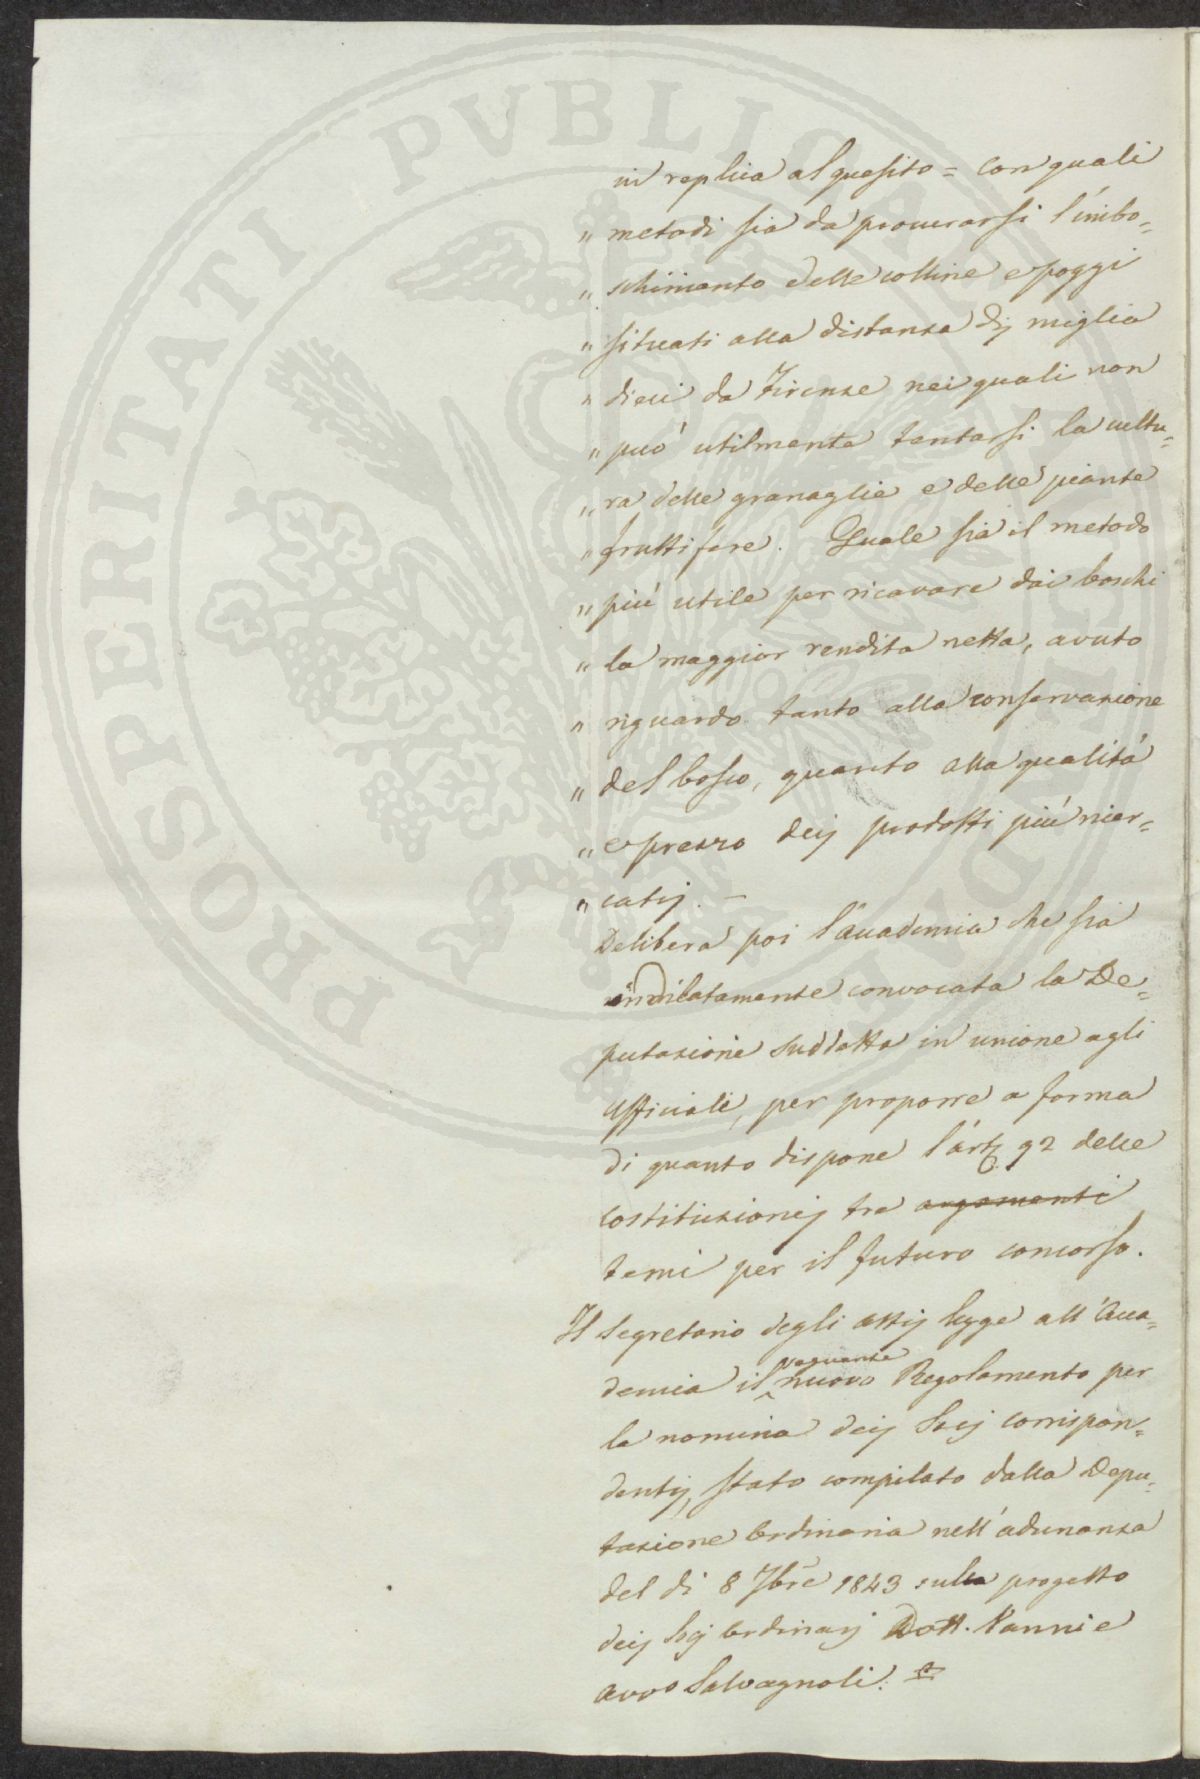 in replica al quesito = Con quali
„ metodi sia da procurarsi l'imbo=
„ schimento delle colline e poggi
„ situati alla distanza di miglia
„ dieci da Firenze nei quali non
„ può utilmente tentarsi la cultu=
„ ra delle granaglie e delle piante
„ fruttifere. Quale sia il metodo
„ più utile per ricavare dai boschi
„ la maggior rendita netta, avuto
„ riguardo tanto alla conservazione
„ del bosco, quanto alla qualità
„ e prezzo deij prodotti più ricer=
„ catij. —
Delibera poi l'Accademia che sia
indilatamente convocata la De=
putazione suddetta in unione agli
Ufficiali, per proporre a forma
di quanto dispone l'art. 92 delle
costituzionij tre argomenti
temi per il futuro concorso.
Il Segretario degli Attij legge all'Acca=
demia il veguente nuovo Regolamento per
la nomina deij Socij corrispon=
dentij, stato compilato dalla Depu=
tazione Ordinaria nell'adunanza
del di 8 7bre 1843 sulla progetto
deij Socij Ordinarj Dott. Vanni e
Avvo Salvagnoli.
PROSPERITATI PVBLICAE AVGENDAE